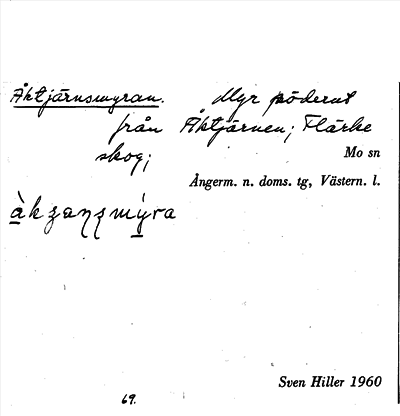 Åktjärnsmyran. Myr söderut
från Åktjärnen; Flärke
skog;
Mo sn
Ångerm. n. doms. tg, Västern. l.
Sven Hiller 1960
69.